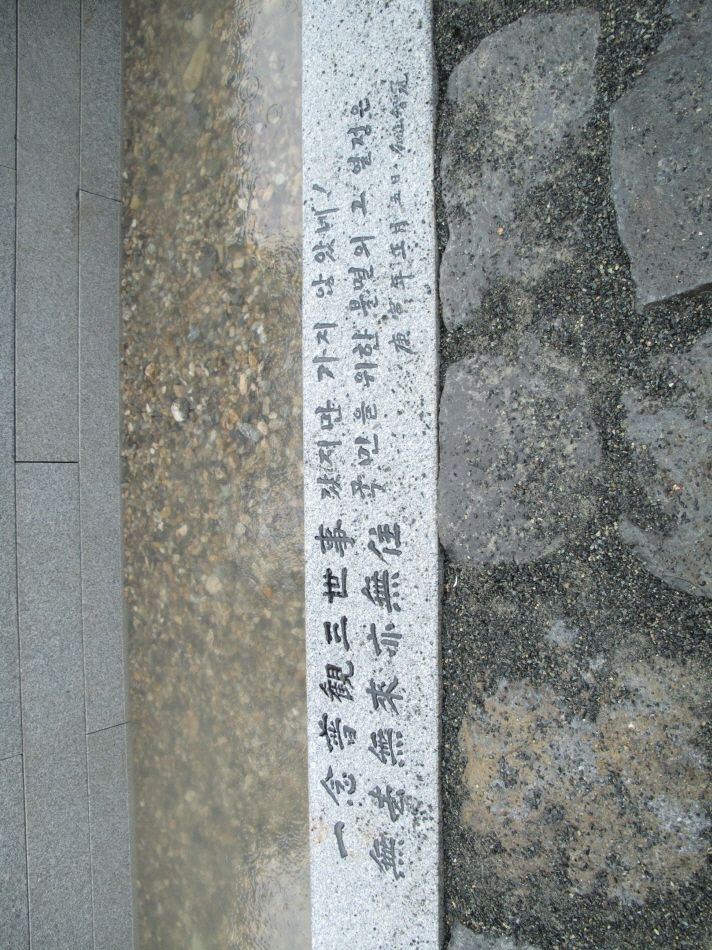 一念普觀三世事 갔지만 가지 않았네!
無去無來亦無住 국민을 위한 불멸의 그 열정은
庚寅年 五月 五日